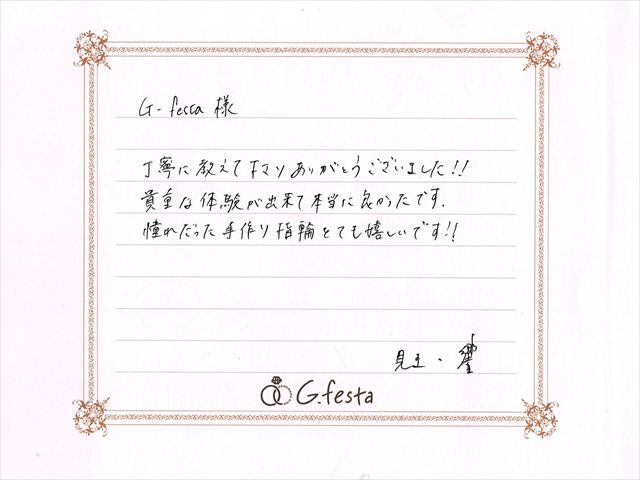 G-festa 様
丁寧に教えて下さりありがとうございました!!
貴重な体験が出来て本当に良かったです.
憧れだった手作り指輪とても嬉しいです!!
G.festa